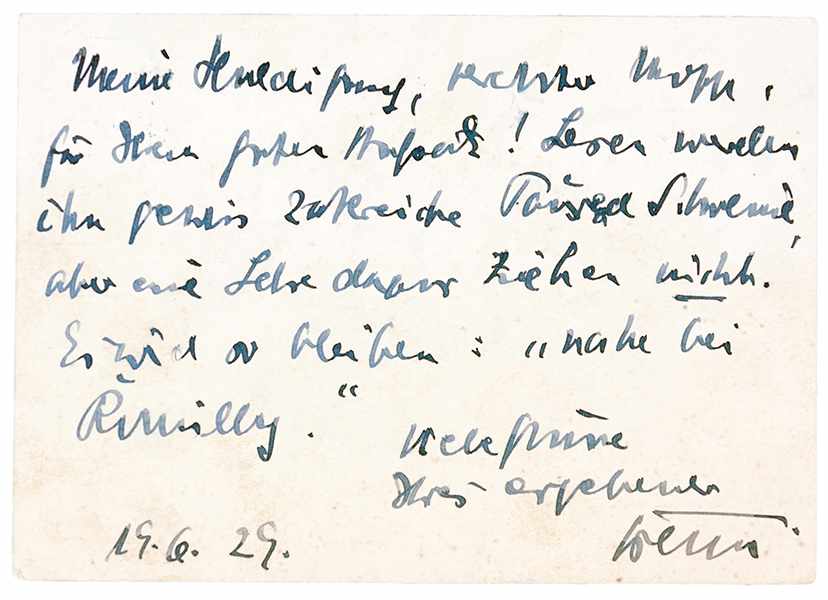 Meine Huldigung, verehrter Mopp,
für Ihren guten Aufsatz! Lesen werden
ihn gewis zalreiche Tausend Schweine,
aber eine Lehre daraus ziehen nicht.
Es wird so bleiben: „nahe bei
Rumilly."
Viele Grüsse
Ihres ergebenen
19.6.29.